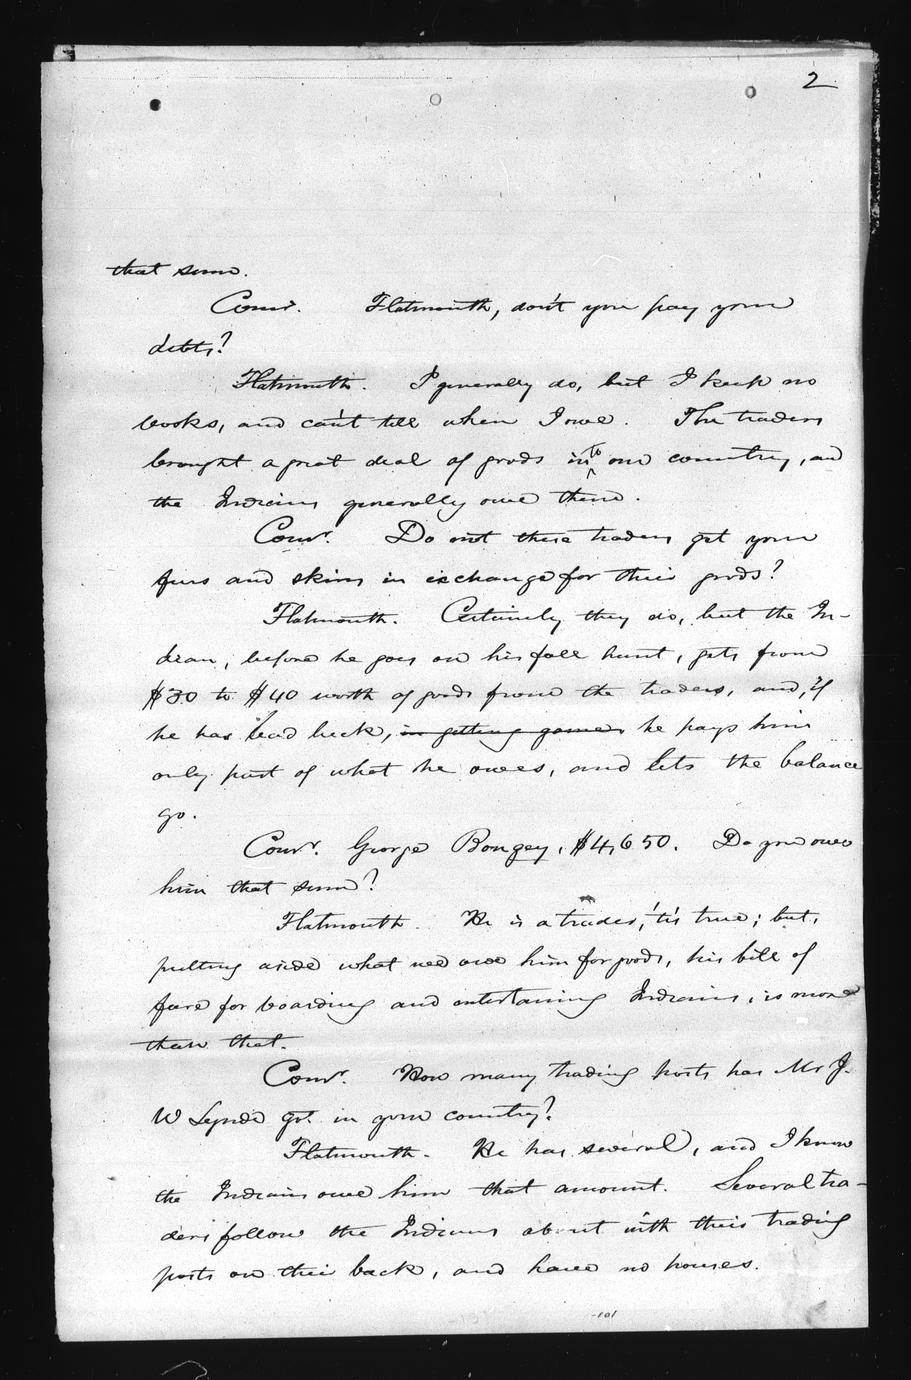 2
that sum.
Comr. Flatmouth, don't you pay your
debts?
Flatmouth. I generally do, but I keep no
books, and can't tell when I owe. The traders
brought a great deal of goods into our country, and
the Indians generally owe them.
Comr. Do not these traders get your
furs and skins in exchange for their goods?
Flatmouth. Certainly they do, but the In-
dian, before he goes on his fall hunt, gets from
$30 to $40 worth of goods from the traders, and, if
he has bad luck, in getting game, he pays him
only part of what he owes, and lets the balance
go.
Comr. George Bongey, $4,650. Do you owe
him that sum?
Flatmouth. He is a trader, 'tis true; but,
putting aside what we owe him for goods, his bill of
fare for boarding and entertaining Indians, is more
than that.
Comr. How many trading posts has Mr J.
W Lynde got in your country?
Flatmouth. He has several, and I know
the Indians owe him that amount. Several tra-
ders follow the Indians about with their trading
posts on their back, and have no houses.
101